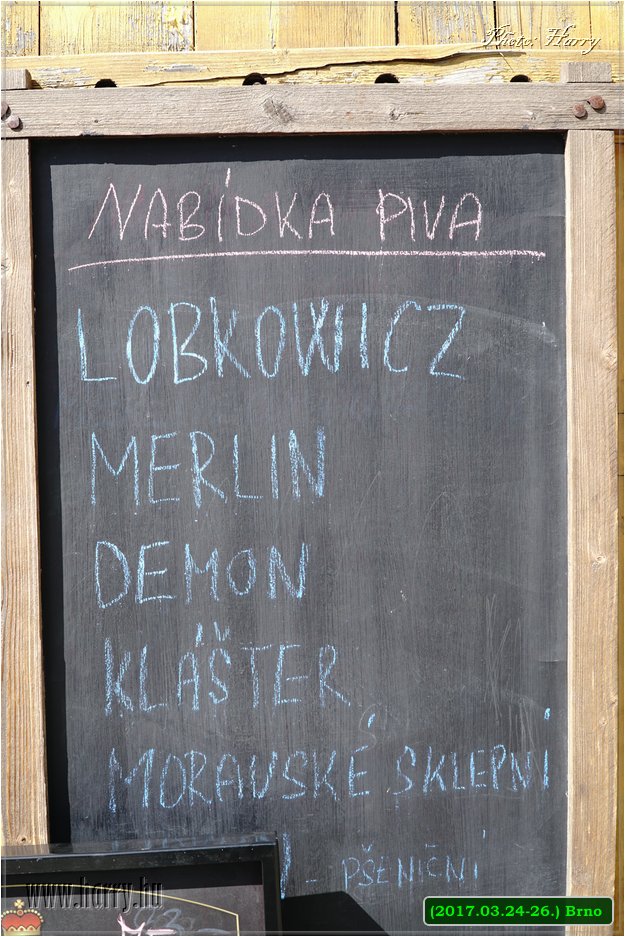 Photo: Harry
NABÍDKA PIVA
LOBKOWICZ
MERLIN
DEMON
KLÁŠTER
MORAVSKÉ SKLEPNÍ
- PŠENIČNÍ
www.harry.hu
(2017.03.24-26.) Brno